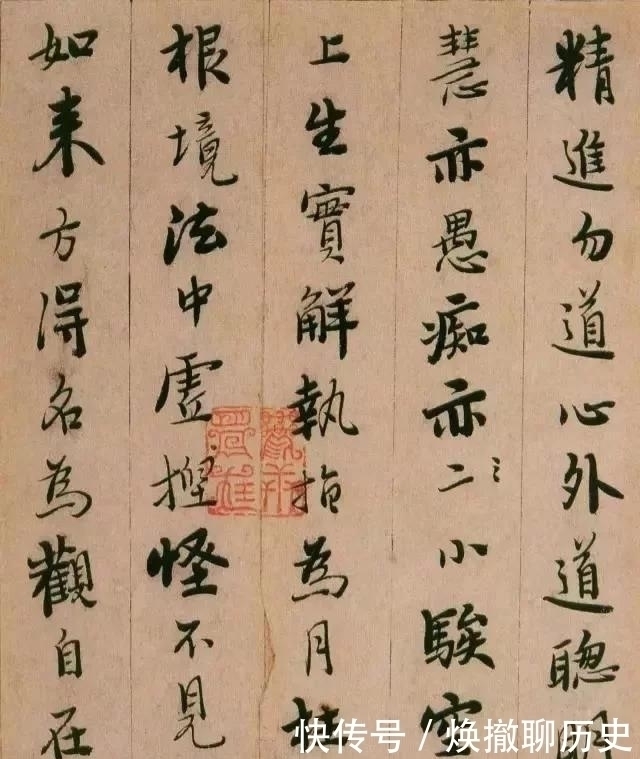 精進勿道心外道聰明
慧亦愚痴亦二小騃空
上生實解執指為月枉
根境法中虛揑怪不見
如来方得名為觀自在
快传号 / 焕撤聊历史